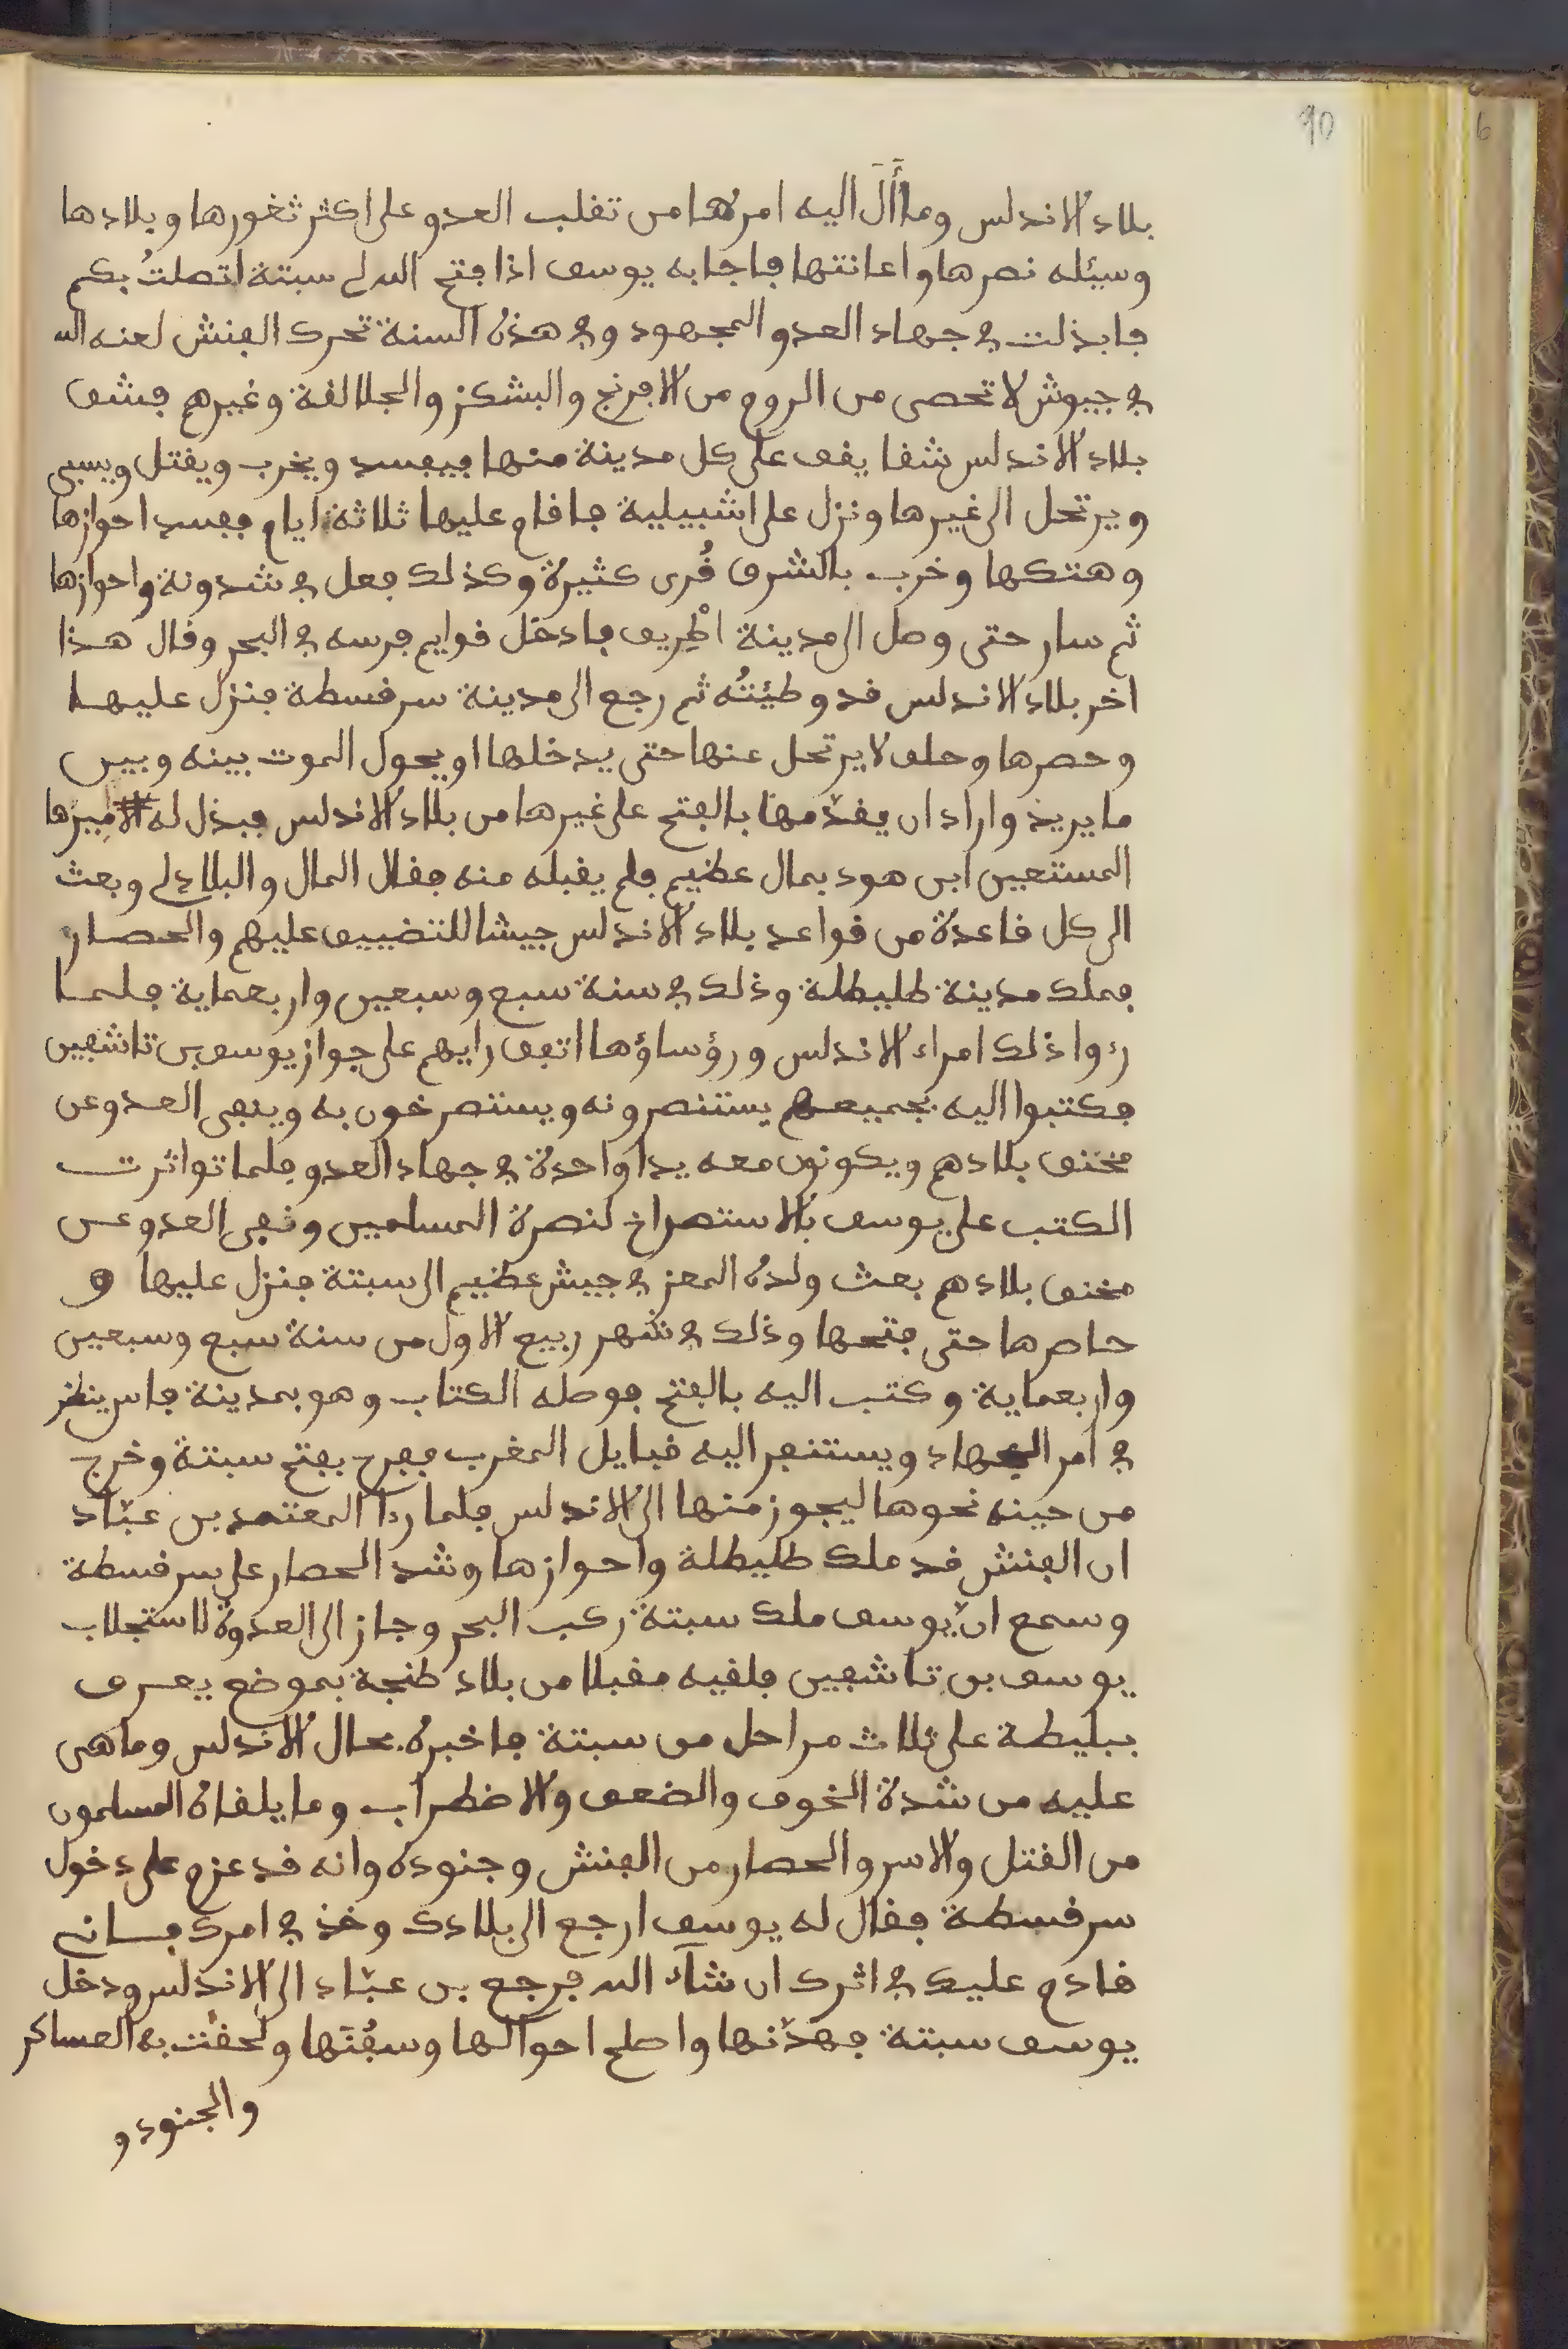 90
6
بلاد الاندلس وما أَلَ اليه امرها من تغلب العدو على اكثر ثغورها وبلادها
وسيئله نصرها واعانتها فاجابه يوسف اذا فتح الله لي سبتة اتصلتُ بكم
فابذلت في جهاد العدو المجهود وفي هذه السنة تحرك الفنش لعنه الله
في جيوش لا تحصى من الروم من الافرنج والبشكنز والجلالقة وغيرهم فشق
بلاد الاندلس شقا يقف على كل مدينة منها فيفسد ويخرب ويقتل ويسبى
ويرتحل الى غيرها ونزل على اشبيلية فاقام عليها ثلاثة ايام ففسد احوازها
وهتكها وخرب بالشرف قُرى كثيرة وكذلك فعل في شدونة واحوازها
ثم سار حتى وصل الى مدينة اطْرِيف فادخل قوايم فرسه في البحر وقال هذا
اخر بلاد الاندلس قد وطيْتُه ثم رجع الى مدينة سرقسطة فنزل عليها
وحصرها وحلف لا يرتحل عنها حتى يدخلها او يحول الموت بينه وبين
ما يريد واراد ان يقدّمها بالفتح على غيرها من بلاد الاندلس فبذل له اميرها
المستعين ابن هود بمال عظيم فلم يقبله منه فقال المال والبلاد لي وبعث
الى كل قاعدة من قواعد بلاد الاندلس جيشا للتضييف عليهم والحصار
فملك مدينة طليطلة وذلك في سنة سبع وسبعين واربعماية فلما
رءوا ذلك امراء الاندلس ورؤساؤها اتفق رايهم على جواز يوسف بن تاشفين
فكتبوا اليه بجميعهم يستنصرونه ويستصرخون به وينفى العدو عن
مخنق بلادهم ويكونون معه يدا واحدة في جهاد العدو فلما تواترت
الكتب على يوسف بالاستصراخ لنصرة المسلمين ونفى العدو عن
مخنق بلادهم بعث ولده المعز في جيش عظيم الى سبتة فنزل عليها و
حاصرها حتى فتحها وذلك في شهر ربيع الاول من سنة سبع وسبعين
واربعماية وكتب اليه بالفتح فوصله الكتاب وهو بمدينة فاس ينظر
في امر الجهاد ويستنفر اليه قبايل المغرب ففرح بفتح سبتة وخرج
من حينه نحوها ليجوز منها الى الاندلس فلما رءا المعتمد بن عبّاد
ان الفنش قد ملك طليطلة واحوازها وشد الحصار على سرقسطة
وسمع انّ يوسف ملك سبتة ركب البحر وجاز الى العدوة لاستجلاب
يوسف بن تاشفين فلقيه مقبلا من بلاد طنجة بموضع يعرف
ببليطة على ثلاث مراحل من سبتة فاخبره بحال الاندلس وما هى
عليه من شدة الخوف والضعف والاضطراب وما يلقاه المسلمون
من القتل والاسر والحصار من الفنش وجنوده وانه قد عزم على دخول
سرقسطة فقال له يوسف ارجع الى بلادك وخذ في امرك فانى
قادم عليك في اثرك ان شآء الله فرجع بن عبّاد الى الاندلس ودخل
يوسف سبتة فهدّنها واصلح احوالها وسفُنَها ولحقت به العساكر
والجنود و